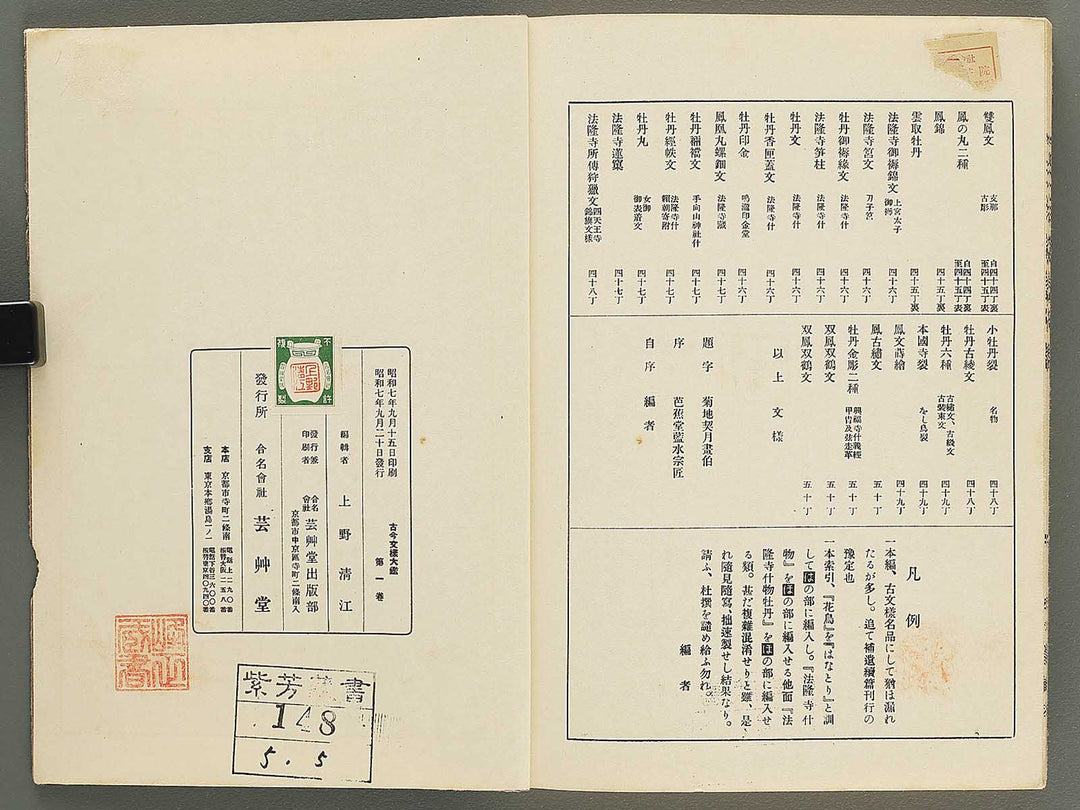 雙鳳文 支那古彫 自四十四丁裏至四十五丁表
鳳の丸二種 自四十四丁裏至四十五丁表
鳳錦 四十五丁裏
雲取牡丹 四十五丁裏
法隆寺御褥錦文 上宮太子御褥 四十六丁
法隆寺筥文 刀子筥 四十六丁
牡丹御褥緣文 法隆寺什 四十六丁
法隆寺笋柱 法隆寺什 四十六丁
牡丹文 法隆寺什 四十六丁
牡丹香匣蓋文 法隆寺什 四十六丁
牡丹印金 鳴瀧印金堂 四十六丁
鳳凰丸螺鈿文 法隆寺藏 四十七丁
牡丹裲襠文 手向山神社什 四十七丁
牡丹經帙文 法隆寺什賴朝寄附 四十七丁
牡丹丸 女御御表着文 四十七丁
法隆寺蓮窠 四十七丁
法隆寺所傳狩獵文 四天王寺錦旗文樣 四十八丁
小牡丹裂 名物 四十八丁
牡丹古綾文 四十八丁
牡丹六種 古繡文、古綾文古裝束文 四十九丁
本國寺裂 をし鳥裂 四十九丁
鳳文蒔繪 四十九丁
鳳古繡文 五十丁
牡丹金彫二種 興福寺什義經甲冑及弦走革 五十丁
双鳳双鶴文 五十丁
双鳳双鶴文 五十丁
以上文樣
題字 菊地契月畫伯
序 芭蕉堂藍水宗匠
自序 編者
凡例
一本編、古文樣名品にして猶は漏れ
たるが多し。追て補遺續篇刊行の
豫定也
一本索引、『花鳥』を『はなとり』と訓
してはの部に編入し。『法隆寺什
物』をほの部に編入せる他面『法
隆寺什物牡丹』をほの部に編入せ
る類。甚だ複雜混淆せりと雖、是、
れ隨見隨寫、拙速製せし結果なり。
請ふ、杜撰を譴め給ふ勿れ。
編者
古今文樣大鑑
第一卷
昭和七年九月十五日印刷
昭和七年九月二十日發行
編輯者 上野清江
發行兼印刷者 合名會社 芸艸堂出版部
京都市中京區寺町二條南入
發行所 合名會社 芸艸堂
本店 京都市寺町二條南
電話上二一九〇番
振替大阪一二五八番
支店 東京本鄉湯島一ノ二
電話下谷三六〇〇番
振替東京四〇九四〇番
不許複製
上野清江
紫芳
書
148
5.5